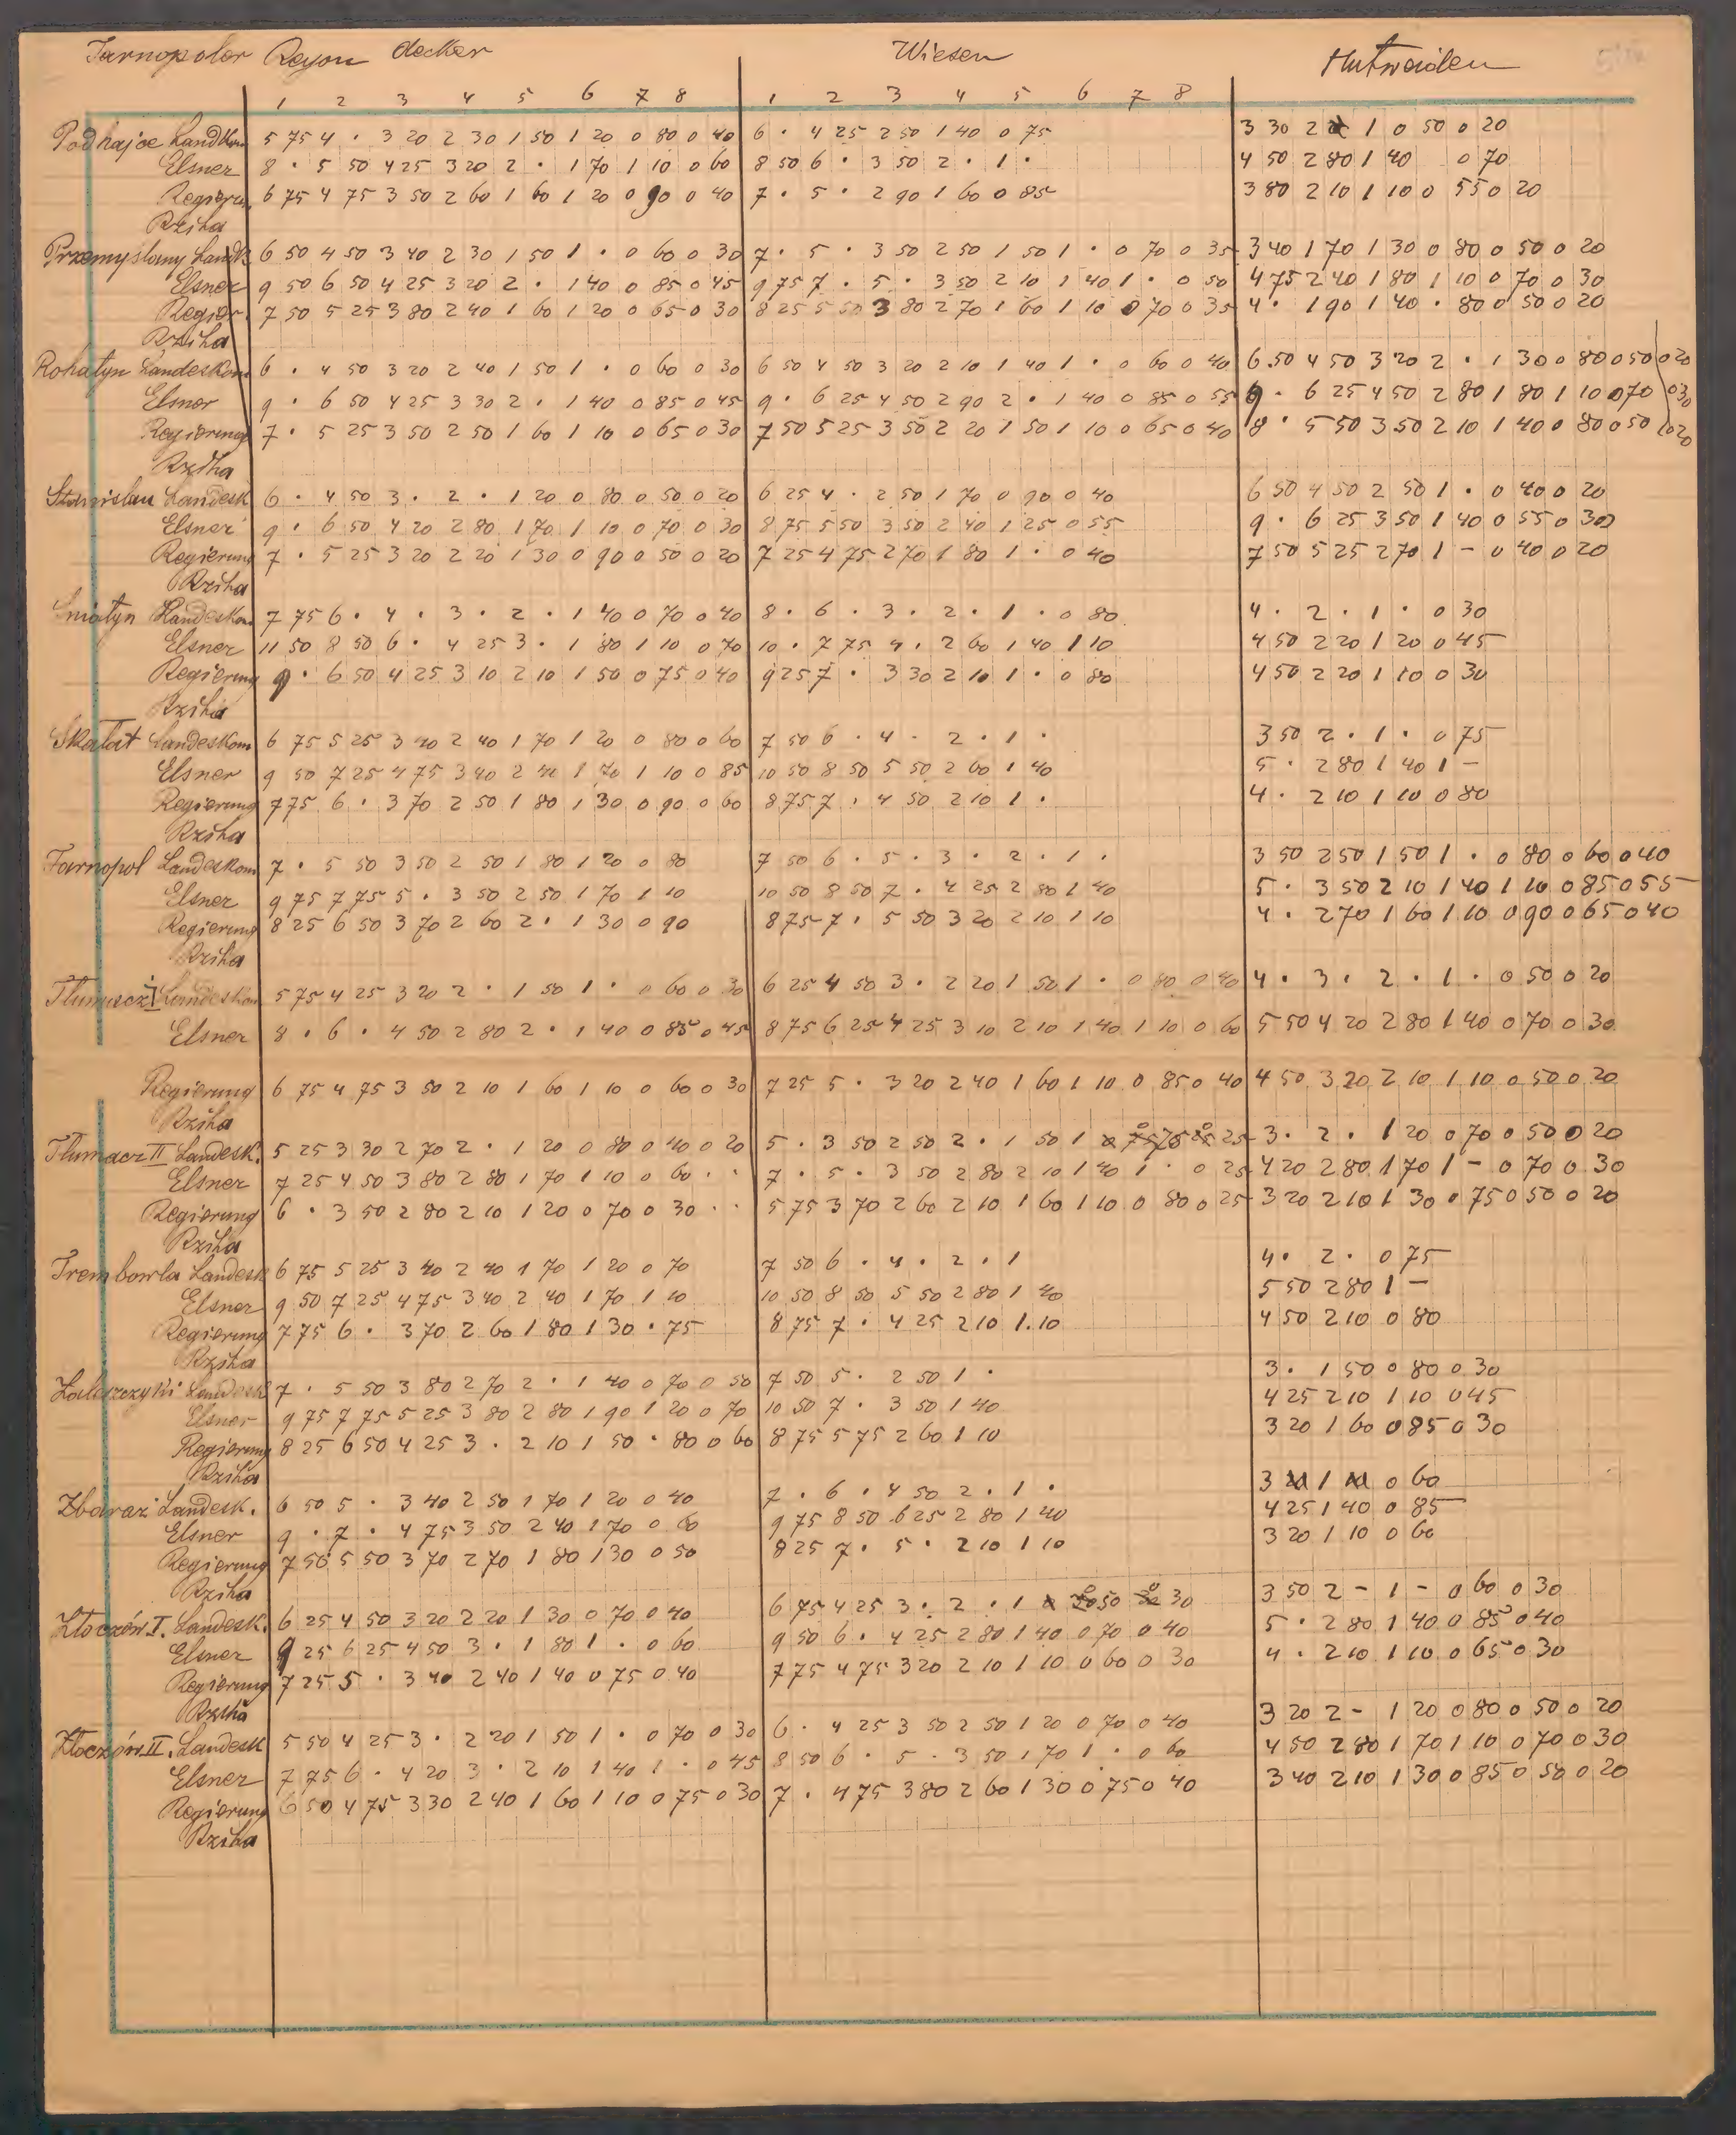 Tarnopoler Rayon Aecker Wiesen Hutweiden
1 2 3 4 5 6 7 8 1 2 3 4 5 6 7 8
Podhajce Landkom 5 75 4 · 3 20 2 30 1 50 1 20 0 80 0 40 6 · 4 25 2 50 1 40 0 75 3 30 2 1 0 50 0 20
Elsner 8 · 5 50 4 25 3 20 2 · 1 70 1 10 0 60 8 50 6 · 3 50 2 · 1 · 4 50 2 80 1 40 0 70
Regierun. 6 75 4 75 3 50 2 60 1 60 1 20 0 90 0 40 7 · 5 · 2 90 1 60 0 85 3 80 2 10 1 10 0 55 0 20
Rziha
Przemyslany Landk 6 50 4 50 3 40 2 30 1 50 1 · 0 60 0 30 7 · 5 · 3 50 2 50 1 50 1 · 0 70 0 35 3 40 1 70 1 30 0 80 0 50 0 20
Elsner 9 50 6 50 4 25 3 20 2 · 1 40 0 85 0 45 9 75 7 · 5 · 3 50 2 10 1 40 1 · 0 50 4 75 2 40 1 80 1 10 0 70 0 30
Regier. 7 50 5 25 3 80 2 40 1 60 1 20 0 65 0 30 8 25 5 50 3 80 2 70 1 60 1 10 0 70 0 35 4 · 1 90 1 40 · 80 0 50 0 20
Rziha
Rohatyn Landeskom 6 · 4 50 3 20 2 40 1 50 1 · 0 60 0 30 6 50 4 50 3 20 2 10 1 40 1 · 0 60 0 40 6 50 4 50 3 20 2 · 1 30 0 80 0 50 0 20
Elsner 9 · 6 50 4 25 3 30 2 · 1 40 0 85 0 45 9 · 6 25 4 50 2 90 2 · 1 40 0 85 0 55 9 · 6 25 4 50 2 80 1 80 1 10 0 70 0 30
Regierung 7 · 5 25 3 50 2 50 1 60 1 10 0 65 0 30 7 50 5 25 3 50 2 20 1 50 1 10 0 65 0 40 8 · 5 50 3 50 2 10 1 40 0 80 0 50 0 20
Rziha
Stanislau Landesk 6 · 4 50 3 · 2 · 1 20 0 80 0 50 0 20 6 25 4 · 2 50 1 70 0 90 0 40 6 50 4 50 2 50 1 · 0 40 0 20
Elsner 9 · 6 50 4 20 2 80 1 70 1 10 0 70 0 30 8 75 5 50 3 50 2 40 1 25 0 55 9 · 6 25 3 50 1 40 0 55 0 30
Regierung 7 · 5 25 3 20 2 20 1 30 0 90 0 50 0 20 7 25 4 75 2 70 1 80 1 · 0 40 7 50 5 25 2 70 1 - 0 40 0 20
Rziha
Sniatyn Landeskom 7 75 6 · 4 · 3 · 2 · 1 40 0 70 0 40 8 · 6 · 3 · 2 · 1 · 0 80 4 · 2 · 1 · 0 30
Elsner 11 50 8 50 6 · 4 25 3 · 1 80 1 10 0 70 10 · 7 75 4 · 2 60 1 40 1 10 4 50 2 20 1 20 0 45
Regierung 9 · 6 50 4 25 3 10 2 10 1 50 0 75 0 40 9 25 7 · 3 30 2 10 1 · 0 80 4 50 2 20 1 10 0 30
Rziha
Skalat Landeskom 6 75 5 25 3 40 2 40 1 70 1 20 0 80 0 60 7 50 6 · 4 · 2 · 1 · 3 50 2 · 1 · 0 75
Elsner 9 50 7 25 4 75 3 40 2 40 1 70 1 10 0 85 10 50 8 50 5 50 2 60 1 40 5 · 2 80 1 40 1 -
Regierung 7 75 6 · 3 70 2 50 1 80 1 30 0 90 0 60 8 75 7 · 4 50 2 10 1 · 4 · 2 10 1 10 0 80
Rziha
Tarnopol Landeskom 7 · 5 50 3 50 2 50 1 80 1 20 0 80 7 50 6 · 5 · 3 · 2 · 1 · 3 50 2 50 1 50 1 · 0 80 0 60 0 40
Elsner 9 75 7 75 5 · 3 50 2 50 1 70 1 10 10 50 8 50 7 · 4 25 2 80 1 40 5 · 3 50 2 10 1 40 1 10 0 85 0 55
Regierung 8 25 6 50 3 70 2 60 2 · 1 30 0 90 8 75 7 · 5 50 3 20 2 10 1 10 4 · 2 70 1 60 1 10 0 90 0 65 0 40
Rziha
Tlumacz I Landeskom 5 75 4 25 3 20 2 · 1 50 1 · 0 60 0 30 6 25 4 50 3 · 2 20 1 50 1 · 0 80 0 40 4 · 3 · 2 · 1 · 0 50 0 20
Elsner 8 · 6 · 4 50 2 80 2 · 1 40 0 85 0 45 8 75 6 25 4 25 3 10 2 10 1 40 1 10 0 60 5 50 4 20 2 80 1 40 0 70 0 30
Regierung 6 75 4 75 3 50 2 10 1 60 1 10 0 60 0 30 7 25 5 · 3 20 2 40 1 60 1 10 0 85 0 40 4 50 3 20 2 10 1 10 0 50 0 20
Rziha
Tlumacz II Landesk. 5 25 3 30 2 70 2 · 1 20 0 80 0 40 0 20 5 · 3 50 2 50 2 · 1 50 1 75 25 3 · 2 · 1 20 0 70 0 50 0 20
Elsner 7 25 4 50 3 80 2 80 1 70 1 10 0 60 · · 7 · 5 · 3 50 2 80 2 10 1 40 1 · 0 25 4 20 2 80 1 70 1 - 0 70 0 30
Regierung 6 · 3 50 2 80 2 10 1 20 0 70 0 30 · · 5 75 3 70 2 60 2 10 1 60 1 10 0 80 0 25 3 20 2 10 1 30 0 75 0 50 0 20
Rziha
Trembowla Landesk 6 75 5 25 3 40 2 40 1 70 1 20 0 70 7 50 6 · 4 · 2 · 1 4 · 2 · 0 75
Elsner 9 50 7 25 4 75 3 40 2 40 1 70 1 10 10 50 8 50 5 50 2 80 1 40 5 50 2 80 1 -
Regierung 7 75 6 · 3 70 2 60 1 80 1 30 · 75 8 75 7 · 4 25 2 10 1 10 4 50 2 10 0 80
Rziha
Zaleszczyki Landesk 7 · 5 50 3 80 2 70 2 · 1 40 0 70 0 50 7 50 5 · 2 50 1 · 3 · 1 50 0 80 0 30
Elsner 9 75 7 75 5 25 3 80 2 80 1 90 1 20 0 70 10 50 7 · 3 50 1 40 4 25 2 10 1 10 0 45
Regierung 8 25 6 50 4 25 3 · 2 10 1 50 · 80 0 60 8 75 5 75 2 60 1 10 3 20 1 60 0 85 0 30
Rziha
Zbaraz Landesk. 6 50 5 · 3 40 2 50 1 70 1 20 0 40 7 · 6 · 4 50 2 · 1 · 3 1 0 60
Elsner 9 · 7 · 4 75 3 50 2 40 1 70 0 60 9 75 8 50 6 25 2 80 1 40 4 25 1 40 0 85
Regierung 7 50 5 50 3 70 2 70 1 80 1 30 0 50 8 25 7 · 5 · 2 10 1 10 3 20 1 10 0 60
Rziha
Zloczów I. Landesk. 6 25 4 50 3 20 2 20 1 30 0 70 0 40 6 75 4 25 3 · 2 · 1 50 30 3 50 2 - 1 - 0 60 0 30
Elsner 9 25 6 25 4 50 3 · 1 80 1 · 0 60 9 50 6 · 4 25 2 80 1 40 0 70 0 40 5 · 2 80 1 40 0 85 0 40
Regierung 7 25 5 · 3 40 2 40 1 40 0 75 0 40 7 75 4 75 3 20 2 10 1 10 0 60 0 30 4 · 2 10 1 10 0 65 0 30
Rziha
Zloczów II. Landesk 5 50 4 25 3 · 2 20 1 50 1 · 0 70 0 30 6 · 4 25 3 50 2 50 1 20 0 70 0 40 3 20 2 - 1 20 0 80 0 50 0 20
Elsner 7 75 6 · 4 20 3 · 2 10 1 40 1 · 0 45 8 50 6 · 5 · 3 50 1 70 1 · 0 60 4 50 2 80 1 70 1 10 0 70 0 30
Regierung 6 50 4 75 3 30 2 40 1 60 1 10 0 75 0 30 7 · 4 75 3 80 2 60 1 30 0 75 0 40 3 40 2 10 1 30 0 85 0 50 0 20
Rziha